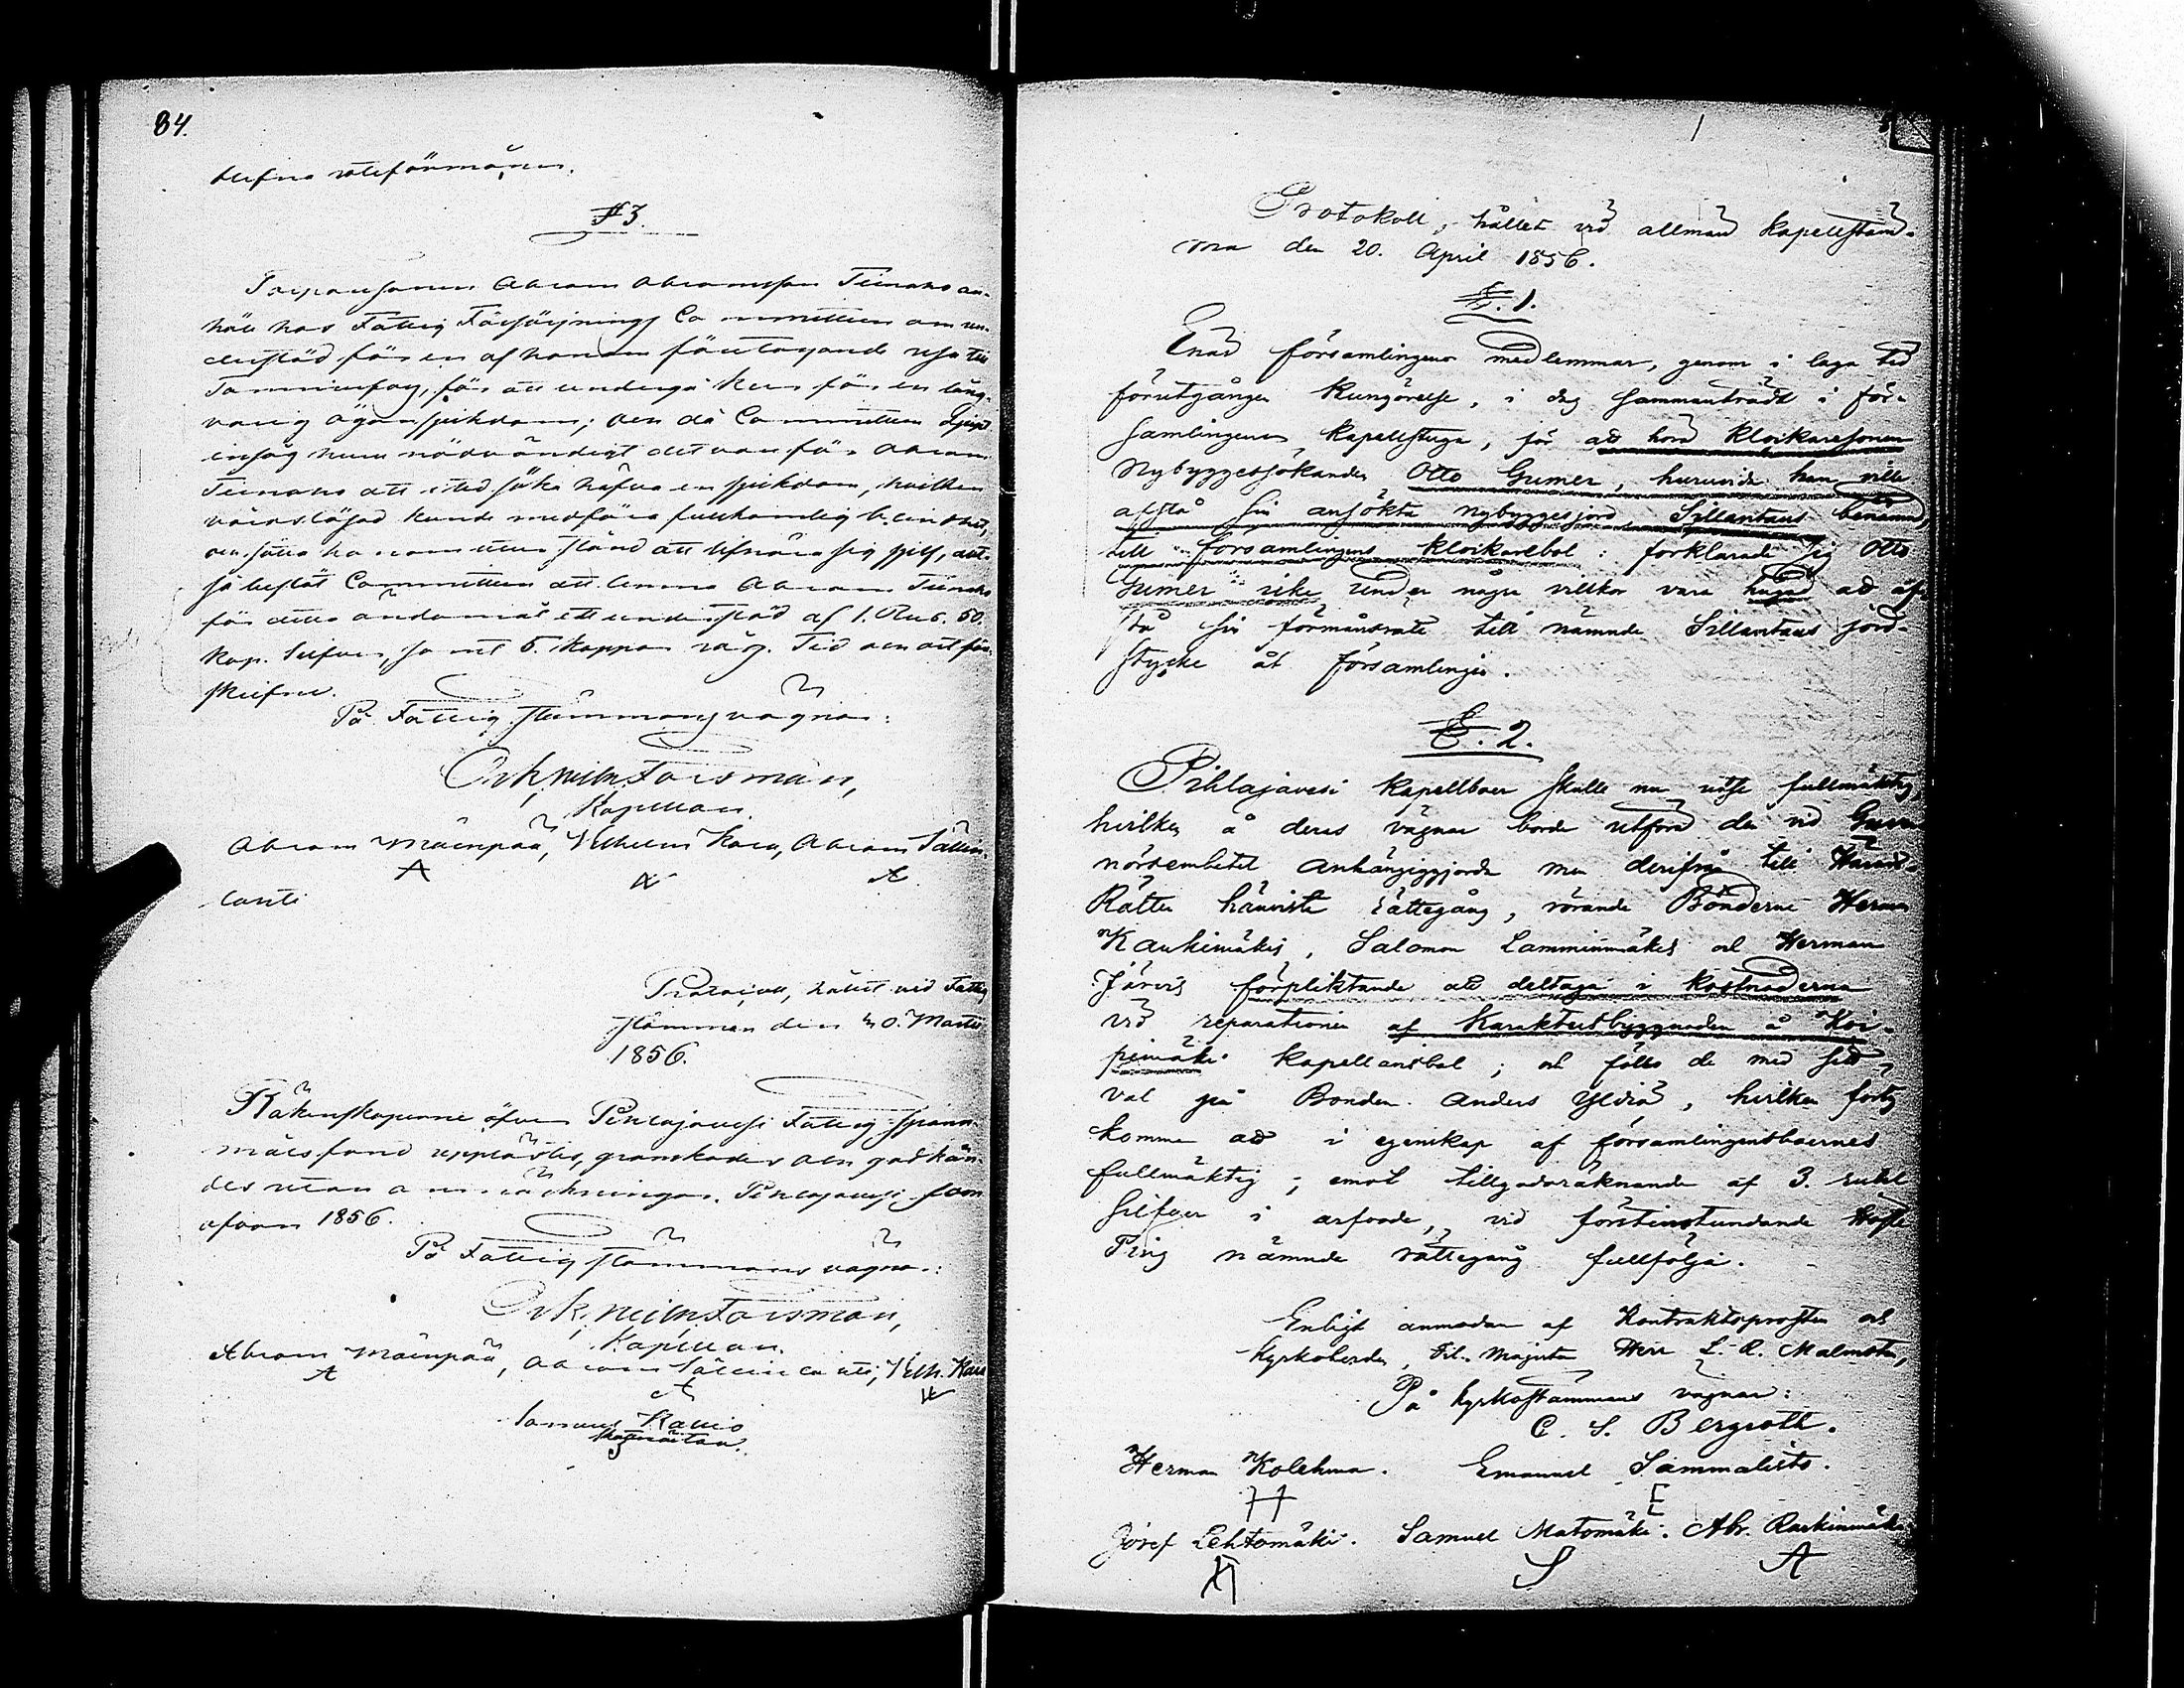 84.
blefne roteförmän.
§ 3.
Torparsonen Abram Abramsson Tiinaho an-
höll hos Fattig Försörjnings Committeen om un-
derstöd för en af honom företagande resa till
Tammerfors, för att undergå kur för en lång-
varig ögonsjukdom; och då Committeen
insåg huru nödvändigt det var för Abram
Tiinaho att söka häfva en sjukdom, hvilken
vårdslösad kunde medföra fullkomlig blindhet,
och sätta honom utan stånd att lifnära sig sjelf, alt-
så beslöt Committeen att lemna Abram Tiinaho
för detta ändamål ett understöd af 1. Rub. 50.
Kop. Silfver, samt 5. kappar råg. Tid och ort för-
skrifne.
På Fattigstämmans vägnar:
Forsman,
Kapellan.
Abram Mäenpää, Vilhelm Kara, Abram Sällin-
A
canti
Protocoll, hållet vid Fattig
stämman den Martii
1856.
Räkenskaperne öfver Pihlajavesi Fattig-spann-
målsfond upplästes, granskades och godkän-
des utan anmärkningar. Pihlajavesi som
ofvan 1856.
På Fattigstämmans vägnar:
Forsman,
Kapellan.
Abram Mäenpää, Abram Vilh. Kara
A
Samuel
Protokoll, hållet vid allmän kapellstäm-
ma den 20. April 1856.
§. 1.
Enär församlingens medlemmar, genom i laga tid
förutgången kungörelse, i dag sammanträdt i för-
samlingens kapellstuga, för att höra klockaresonen
Nybyggessökanden Otto Gumer, huruvida han ville
afstå sin ansökta nybyggesjord Sillantaus benämnd,
till församlingens klockarebol: förklarade sig Otto
Gumer icke under några villkor vara hugad att af-
stå sin förmånsrätt till nämnde Sillantaus jord-
stycke åt församlingen.
§. 2.
Pihlajavesi kapellboer skulle nu utse fullmäktig,
hvilken å deras vägnar borde utföra den vid Guver-
nörsembetet anhängiggjorda men derifrån till Härads-
Rätten hänviste rättegång, rörande Bönderne Herman
Kaukimäkis, Salomon Lamminmäkis och Herman
Järvis förpliktande att deltaga i kostnaderna
vid reparationen af Karaktersbyggnaden å Koi-
pimäki kapellansbol; och föllo de med sitt
val på Bonden Anders Yldiä, hvilken
komme att i egenskap af församlingensboernes
fullmäktig; emot tillgodoräknande af 3. rubel
Silfver i arfvode, vid förstinstundande Höste
Ting nämnde rättegång fullfölja.
Enligt anmodan af Kontraktsprosten och
Kyrkoherden, Fil. Magistern Herr L. R. Malmsten,
På kyrkostämmans vägnar:
C. S. Bergroth.
Herman Kolehma. Emanuel Sammalisto.
H E
Josef Lehtomäki. Samuel Matomäki. Abr. Raskinmäki
S A